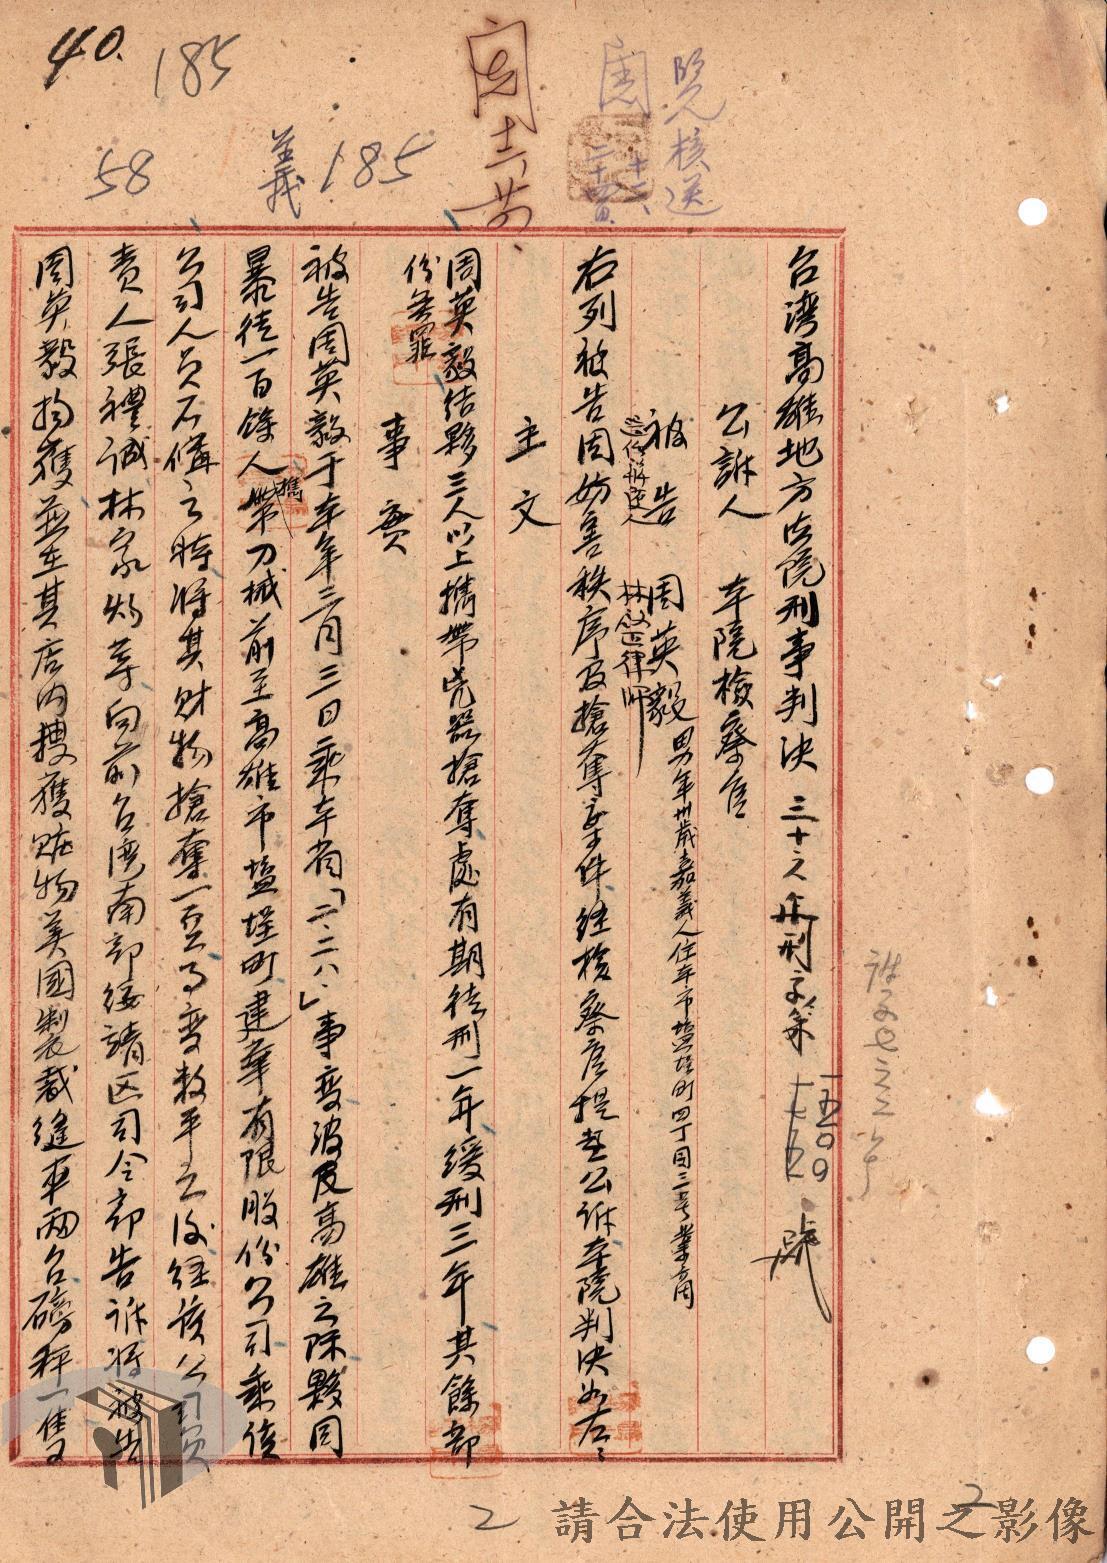 40.
185
58
義 185
閱 十二、廿四、
閱 十二、二十四
核送
台湾高雄地方法院刑事判決 三十六年刑字第 號
公訴人 本院檢察官
被告 周英毅 男年卅歲嘉義人住本市塩埕町四丁目三号業商
選任辯護人 律師
右列被告因妨害秩序及搶奪案件经檢察官提起公訴本院判決如左：
主文
周英毅结夥三人以上攜帶兇器搶奪處有期徒刑二年缓刑三年其餘部
份無罪
事實
被告周英毅于本年三月三日乘本省「二、二八」事变波及高雄之际夥同
暴徒一百餘人攜帶刀械前至高雄市塩埕町建華有限股份公司乘值
公司人员不備之時将其財物搶奪一空事变敉平之後经该公司負
责人張禮诚林家灿等向前台湾南部绥靖区司令部告诉将被告
周英毅拘獲並在其店内搜獲赃物美國製裁縫車兩台磅秤一隻
2
2
請合法使用公開之影像